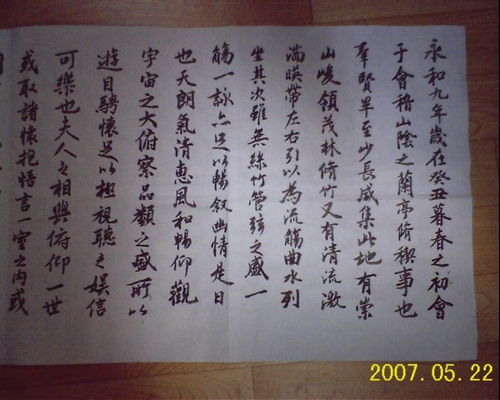 永和九年歲在癸丑暮春之初會
于會稽山陰之蘭亭脩稧事也
羣賢畢至少長咸集此地有崇
山峻領茂林脩竹又有清流激
湍暎帶左右引以為流觴曲水列
坐其次雖無絲竹管弦之盛一
觴一詠亦足以暢敘幽情是日
也天朗氣清惠風和暢仰觀
宇宙之大俯察品類之盛所以
遊目騁懷足以極視聽之娛信
可樂也夫人之相與俯仰一世
或取諸懷抱悟言一室之內或
2007.05.22